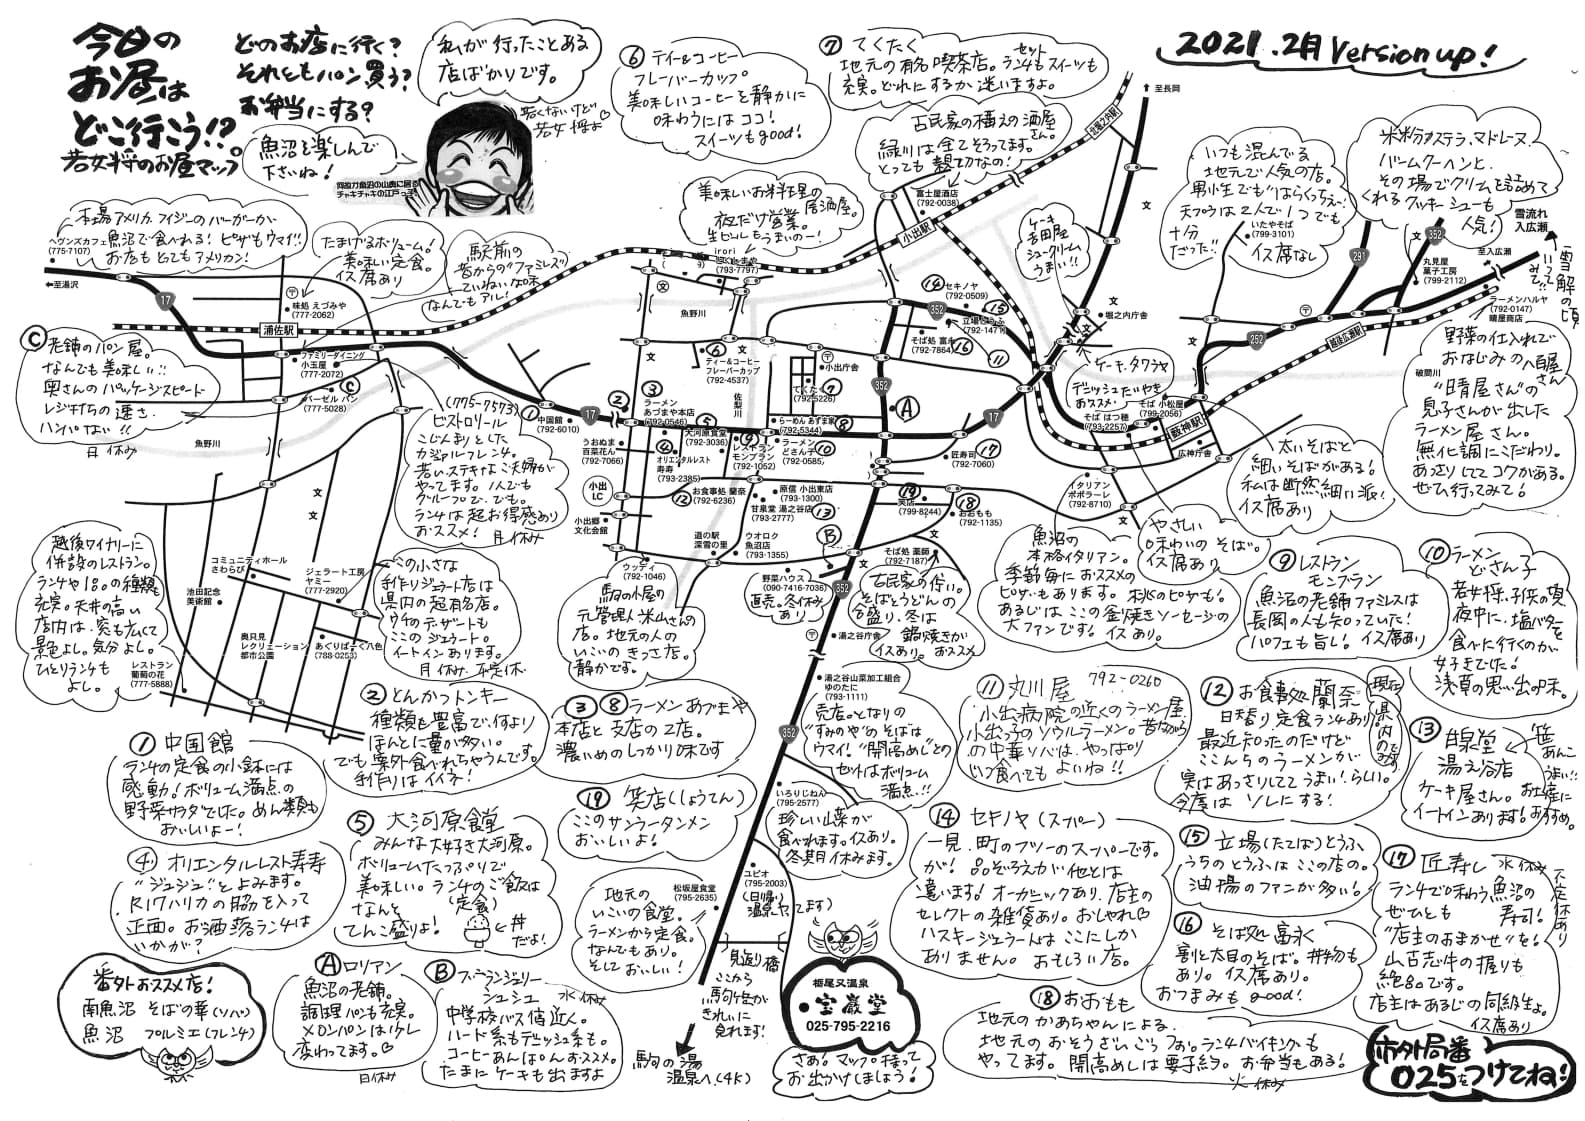 今日の
お昼は
どこ行こう!?。
若女将のお昼マップ
どのお店に行く?
それともパン買う?
お弁当にする?
魚沼を楽しんで
下さいね!
私が行ったことある
店ばかりです。
若くないけど
若女将よ
何故か魚沼の山奥に居る
チャキチャキの江戸っ子
2021.2月 Version up!
⑥ ティー&コーヒー
フレーバーカップ
美味しいコーヒーを静かに
味わうにはココ!
スイーツもgood!
⑦ てくたく
地元の有名喫茶店。ランチもスイーツも
セット
充実。どれにするか迷いますよ。
古民家の構えの酒屋さん。
緑川は全てそろってます。
とっても親切なの!
富士屋酒店
(792-0038)
美味しいお料理の
居酒屋。
夜だけ営業。
生ビールもうまいのー!
irori
(793-7797)
ケーキ
吉田屋
シュークリーム
うまい!!
いつも混んでる
地元で人気の店。
男小生でも"はらくっちぇー!
天プラは2人で1つでも
十分
だった!!
いたやそば
(799-3101)
イス席なし
米粉カステラ、マドレーヌ
バームクーヘンと、
その場でクリームを詰めて
くれるクッキーシューも
人気!
丸見屋
菓子工房
(799-2112)
雪流れ
入広瀬
至入広瀬
雪解の頃
いってみて!!
ラーメンハルヤ
(792-0147)
晴屋商店
野菜の仕入れで
おなじみの八百屋さん
"晴屋さん"の
息子さんが出した
ラーメン屋さん。
無化調にこだわり。
あっさりしててコクがある。
ぜひ行ってみて!
本場アメリカ フィジーのバーガーが
魚沼で食べれる!ピザもウマイ!!
お店もとてもアメリカン!
ヘヴンズカフェ
(775-7107)
たまげるボリューム!
美味しい定食。
イス席あり
味処 えづみや
(777-2062)
駅前の
昔からの"ファミレス"
ていねいな味
なんでもアル!
至湯沢
17
浦佐駅
ファミリーダイニング
小玉屋
(777-2072)
Ⓒ
バーゼル パン
(777-5028)
Ⓒ 老舗のパン屋。
なんでも美味しい!!
奥さんのパッケージスピード
レジ打ちの速さ
ハンパない!!
日休み
魚野川
(775-7573)
ビストロリール
こじんまりとした
カジュアルフレンチ。
若いステキなご夫婦が
やってます。1人でも
グループで、でも。
ランチは超お得感あり
おススメ! 月休み
① 中国館
(792-6010)
②
③
ラーメン
あづまや本店
(792-0546)
うおぬま
百菜花ん
(792-7066)
④ オリエンタルレスト
寿寿
(793-2385)
⑤
大河原食堂
(792-3036)
⑥
ティー&コーヒー
フレーバーカップ
(792-4537)
佐梨川
魚野川
小出庁舎
てくたく⑦
(792-5226)
らーめん あずま家⑧
(792-5344)
⑨
レストラン
モンブラン
(792-1052)
ラーメン
どさん子⑩
(792-0585)
小出
I.C
⑫ お食事処 蘭奈
(792-6236)
原信 小出東店
(793-1300)
甘泉堂 湯之谷店⑬
(793-2777)
小出郷
文化会館
道の駅
深雪の里
ウオロク
魚沼店
(793-1355)
ウッディ
(792-1046)
野菜ハウス
(090-7416-7036)
直売。冬休み
あり
小出駅
北堀之内駅
至長岡
堀之内庁舎
⑭
セキノヤ
(792-0509)
352
⑮
立場とうふ
(792-1471)
そば処 富永
(792-7864)
⑯
⑪
352
Ⓐ
17
匠寿司
(792-7060)
⑰
⑲
笑店
(799-8244)
⑱
おおもも
(792-1135)
Ⓑ
そば処 薬師
(792-7187)
ケーキ、タワラヤ
デニッシュたいやき
おススメ
そば 小松屋
(799-2056)
そば はつ穂
(793-2257)
藪神駅
広神庁舎
252
291
352
越後広瀬駅
破間川
イタリアン
ポポラーレ
(792-8710)
太いそばと
細いそばがある!
私は断然細い派!
イス席あり
やさしい
味わいの そば。
イス席あり
魚沼の
本格イタリアン。
季節毎におススメの
ピザもあります。桃のピザも!
あるじはここの釜焼きソーセージの
大ファンです!イスあり。
古民家の佇い。
そばとうどんの
合盛り、冬は
鍋焼きが
イスあり。おススメ
越後ワイナリーに
併設のレストラン。
ランチや1品の種類も
充実。天井の高い
店内は、窓も広くて
景色よし。気分よし。
ひとりランチも
よし。
レストラン
葡萄の花
(777-5888)
コミュニティホール
さわらび
池田記念
美術館
ジェラート工房
ヤミー
(777-2920)
奥只見
レクリエーション
都市公園
あぐりぱーく八色
(788-0253)
この小さな
手作りジェラート店は
県内の超有名店。
ウチのデザートも
ここのジェラート。
イートインあります。
月休み。不定休
駒の小屋の
元管理人米山さんの
店。地元の人の
いこいのきっさ店。
静かです。
① 中国館
ランチの定食の小鉢には
感動!ボリューム満点の
野菜サラダでした。めん類も
おいしいよー!
② とんかつトンキー
種類も豊富で、何より
ほんとに量が多い。
でも案外食べれちゃうんです。
手作りはイイネ!
③ ⑧ ラーメン あづまや
本店と支店の2店。
濃いめのしっかり味です
④ オリエンタルレスト寿寿
"ジュジュ"とよみます。
R17ハリカの脇を入って
正面。お洒落ランチは
いかが?
⑤ 大河原食堂
みんな大好き大河原。
ボリュームたっぷりで
美味しい。ランチのご飯は
(定食)
なんと
てんこ盛りよ!
←丼
だよ!
⑲ 笑店(しょうてん)
ここのサンラータンメン
おいしいよ!
地元の
いこいの食堂。
ラーメンから定食。
なんでもあり。
そしておいしい!
松坂屋食堂
(795-2635)
番外おススメ店!
南魚沼 そばの華(ソバ)
魚沼 プルミエ(フレンチ)
Ⓐ ロリアン
魚沼の老舗。
調理パンも充実。
メロンパンは少し
変わってます。♡
日休み
Ⓑ ブーランジェリー
シュシュ 水休み
中学校バス停近く。
ハード系もデニッシュ系も。
コーヒーあんぱんおススメ。
たまにケーキも出ますよ
湯之谷庁舎
湯之谷山菜加工組合
ゆのたに
(793-1111)
売店。となりの
"すみのや"のそばは
ウマイ!"開高め"との
セットはボリューム
満点!!
352
いろりじねん
(795-2577)
珍しい山菜が
食べれます。イスあり。
冬期休みます。
ユピオ
(795-2003)
(日帰り
温泉やってます)
見返り橋
ここから
駒ヶ岳が
きれいに
見れます!
駒の湯
温泉へ(4K)
栃尾又温泉
宝巌堂
025-795-2216
さあ!マップ持って
お出かけしましょう!
⑪ 丸川屋 792-0260
小出病院の近くのラーメン屋
小出っ子のソウルラーメン。昔ながら
の中華ソバは、やっぱり
いつ食べてもよいね!!
⑫ お食事処 蘭奈
日替り定食ランチあり。
最近知ったのだけど
ここんちのラーメンが
実はあっさりしててうまい!らしい。
今度は ソレにする!
現在
県内のみ
です
⑨ レストラン
モンブラン
魚沼の老舗ファミレスは
長岡の人も知っていた!
パフェも旨し!イス席あり
⑩ ラーメン
どさん子
若女将、子供の頃
夜中に、塩バターを
食べに行くのが
好きでした!
浅草の思い出の味。
⑬ 甘泉堂
湯之谷店
ケーキ屋さん。
イートインあります!
笹
あんこ
うまい!!
お土産に
おすすめ。
⑭ セキノヤ(スーパー)
一見、町のフツーのスーパーです。
が!品ぞろえが他とは
違います!オーガニックあり、店主の
セレクトの雑貨あり。おしゃれ♡
ハスキージェラートはここにしか
ありません。おもしろい店。
⑮ 立場(たてば)とうふ
うちのとうふはここの店の。
油揚のファンが多い!
⑯ そば処 富永
割と太目のそば。丼物も
あり。イス席あり。
おつまみもgood!
⑰ 匠寿し 水休み
不定休あり
ランチで味わう魚沼の
寿司!
ぜひとも
"店主のおまかせ"を!
山古志牛の握りも
絶品です。
店主はあるじの同級生よ。
イス席あり
⑱ おおもも
地元のかあちゃんによる
地元のおそうざいごっつお。ランチバイキングも
やってます。開高めしは要予約。お弁当もある!
火休み
市外局番
025をつけてね!